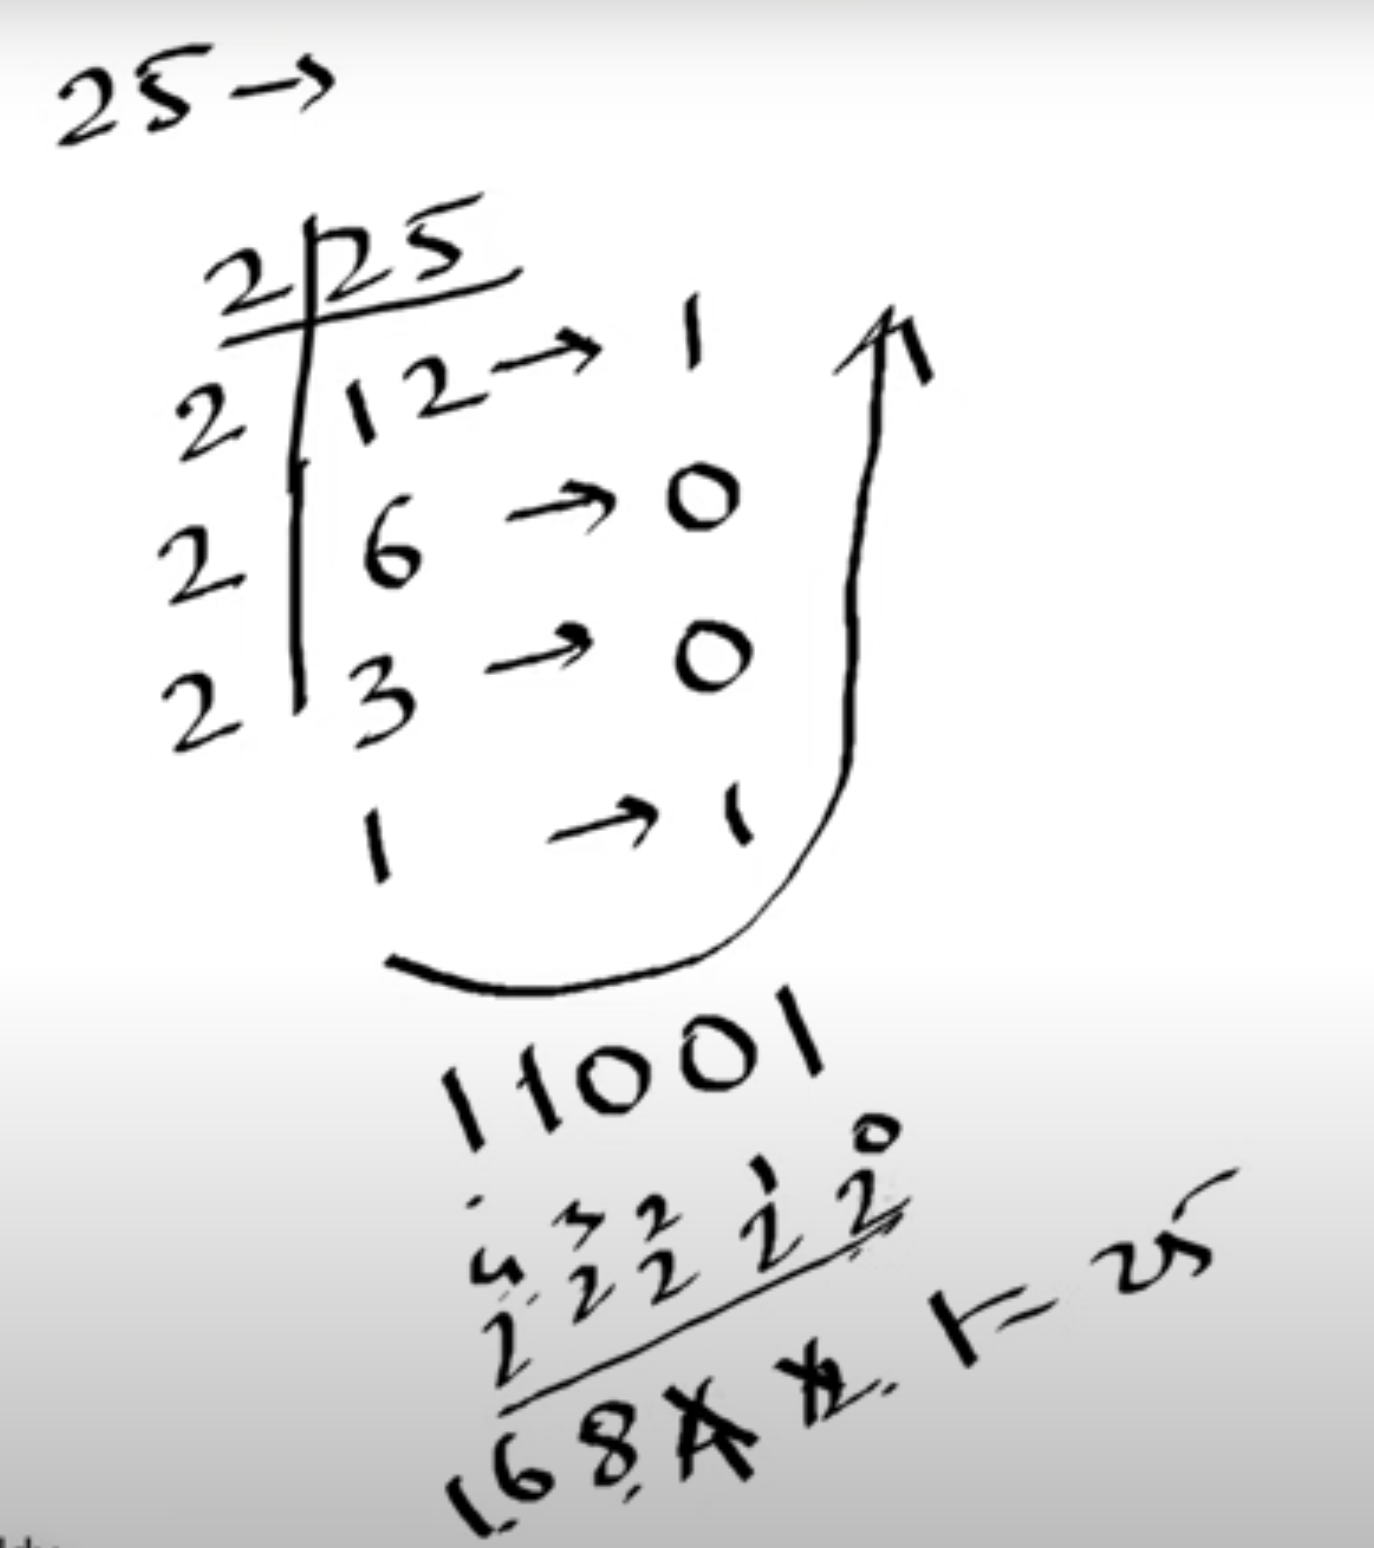 25→
2 25
2 12 → 1
2 6 → 0
2 3 → 0
1 → 1
11001
4 3 2 1 0
2 2 2 2 2
16 8 4 2 1 = 25